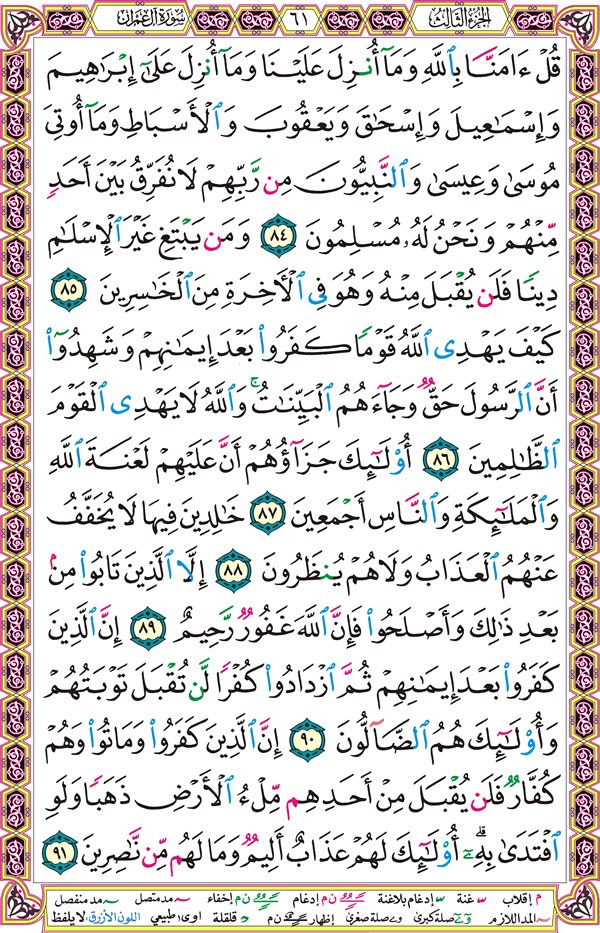 الجزء الثالث
٦١
سورة آل عمران
قُلْ ءَامَنَّا بِٱللَّهِ وَمَآ أُنزِلَ عَلَيْنَا وَمَآ أُنزِلَ عَلَىٰٓ إِبْرَٰهِيمَ
وَإِسْمَٰعِيلَ وَإِسْحَٰقَ وَيَعْقُوبَ وَٱلْأَسْبَاطِ وَمَآ أُوتِىَ
مُوسَىٰ وَعِيسَىٰ وَٱلنَّبِيُّونَ مِن رَّبِّهِمْ لَا نُفَرِّقُ بَيْنَ أَحَدٍ
مِّنْهُمْ وَنَحْنُ لَهُۥ مُسْلِمُونَ ٨٤ وَمَن يَبْتَغِ غَيْرَ ٱلْإِسْلَٰمِ
دِينًا فَلَن يُقْبَلَ مِنْهُ وَهُوَ فِى ٱلْأَخِرَةِ مِنَ ٱلْخَٰسِرِينَ ٨٥
كَيْفَ يَهْدِى ٱللَّهُ قَوْمًا كَفَرُوا۟ بَعْدَ إِيمَٰنِهِمْ وَشَهِدُوٓا۟
أَنَّ ٱلرَّسُولَ حَقٌّ وَجَآءَهُمُ ٱلْبَيِّنَٰتُ ۚ وَٱللَّهُ لَا يَهْدِى ٱلْقَوْمَ
ٱلظَّٰلِمِينَ ٨٦ أُو۟لَٰٓئِكَ جَزَآؤُهُمْ أَنَّ عَلَيْهِمْ لَعْنَةَ ٱللَّهِ
وَٱلْمَلَٰٓئِكَةِ وَٱلنَّاسِ أَجْمَعِينَ ٨٧ خَٰلِدِينَ فِيهَا لَا يُخَفَّفُ
عَنْهُمُ ٱلْعَذَابُ وَلَا هُمْ يُنظَرُونَ ٨٨ إِلَّا ٱلَّذِينَ تَابُوا۟ مِنۢ
بَعْدِ ذَٰلِكَ وَأَصْلَحُوا۟ فَإِنَّ ٱللَّهَ غَفُورٌ رَّحِيمٌ ٨٩ إِنَّ ٱلَّذِينَ
كَفَرُوا۟ بَعْدَ إِيمَٰنِهِمْ ثُمَّ ٱزْدَادُوا۟ كُفْرًا لَّن تُقْبَلَ تَوْبَتُهُمْ
وَأُو۟لَٰٓئِكَ هُمُ ٱلضَّآلُّونَ ٩٠ إِنَّ ٱلَّذِينَ كَفَرُوا۟ وَمَاتُوا۟ وَهُمْ
كُفَّارٌ فَلَن يُقْبَلَ مِنْ أَحَدِهِم مِّلْءُ ٱلْأَرْضِ ذَهَبًا وَلَوِ
ٱفْتَدَىٰ بِهِۦٓ ۗ أُو۟لَٰٓئِكَ لَهُمْ عَذَابٌ أَلِيمٌ وَمَا لَهُم مِّن نَّٰصِرِينَ ٩١
م إقلاب غنة إدغام بلاغنة إدغام ن م إخفاء مد متصل مد منفصل
المد اللازم صلة كبرى صلة صغرى إظهار ن م قلقلة طبيعي اللون الأزرق: لا يلفظ